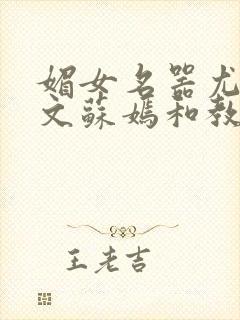 媚女名器尤
文蘇媽和教
王老吉